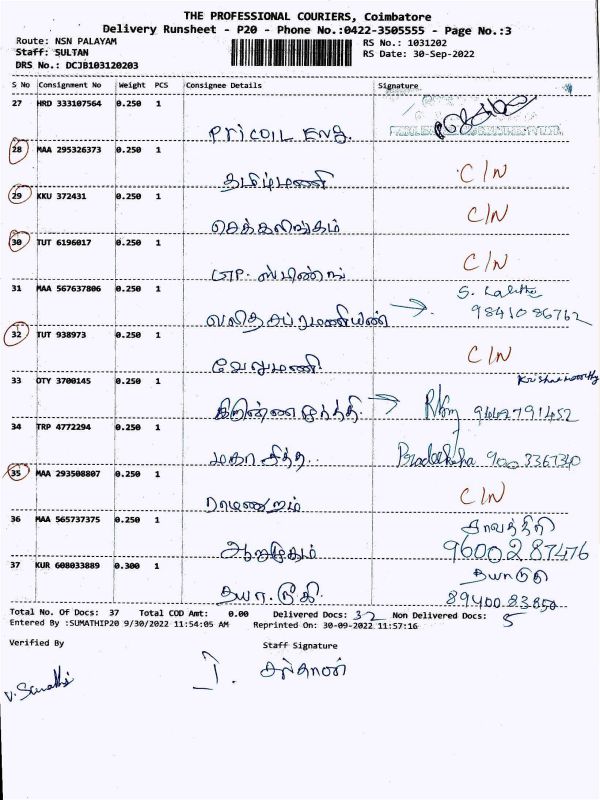 THE PROFESSIONAL COURIERS, Coimbatore
Delivery Runsheet - P20 - Phone No.:0422-3505555 - Page No.:3
Route: NSN PALAYAM RS No.: 1031202
Staff: SULTAN RS Date: 30-Sep-2022
DRS No.: DCJB103120203
S No Consignment No Weight PCS Consignee Details Signature
27 HRD 333107564 0.250 1
PRICOIL ENG.
28 MAA 295326373 0.250 1
தமிழ்மணி C/N
29 KKU 372431 0.250 1
சொக்கலிங்கம் C/N
30 TUT 6196017 0.250 1
C/N
31 MAA 567637806 0.250 1
S. Lalitha
லலிதசுப்ரமணியன் → 9841086762
32 TUT 938973 0.250 1
வேலுமணி C/N
33 OTY 3700145 0.250 1 Krishnamoorthy
→ 9442791452
34 TRP 4772294 0.250 1
மகா சித்த.. Pradeeksha 9003367340
35 MAA 293508807 0.250 1
C/N
36 MAA 565737375 0.250 1
ஆறுமுகம் 9600287476
37 KUR 608033889 0.300 1
8940083850
Total No. Of Docs: 37 Total COD Amt: 0.00 Delivered Docs: 32 Non Delivered Docs: 5
Entered By :SUMATHIP20 9/30/2022 11:54:05 AM Reprinted On: 30-09-2022 11:57:16
Verified By Staff Signature
சுல்தான்
V. Sumathi